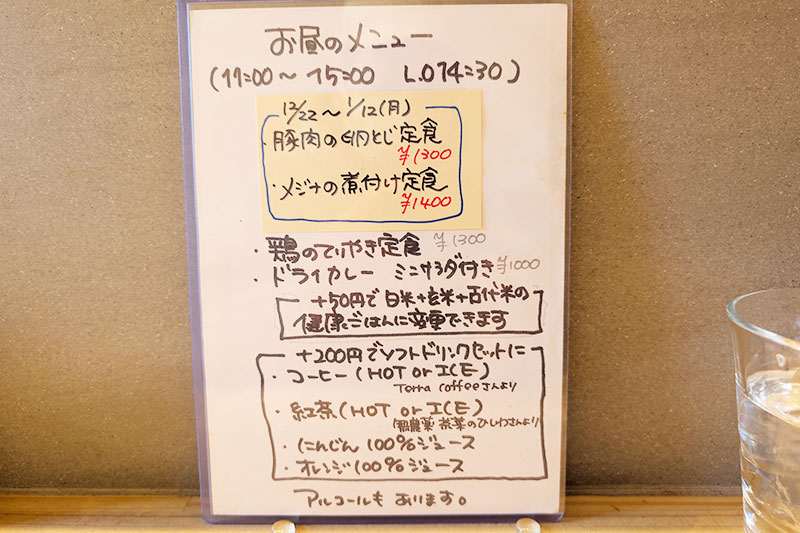 お昼のメニュー
(11:00〜15:00 L.O14:30)
12/22〜1/12(月)
・豚肉の卵とじ定食
¥1300
・メジナの煮付け定食
¥1400
・鶏のてりやき定食 ¥1300
・ドライカレー ミニサラダ付き ¥1000
+50円で白米+玄米+古代米の
健康ごはんに変更できます
+200円でソフトドリンクセットに
・コーヒー(HOT or ICE)
Terra coffeeさんより
・紅茶(HOT or ICE)
無農薬 茶葉のひしわさんより
・にんじん100%ジュース
・オレンジ100%ジュース
アルコールもあります。